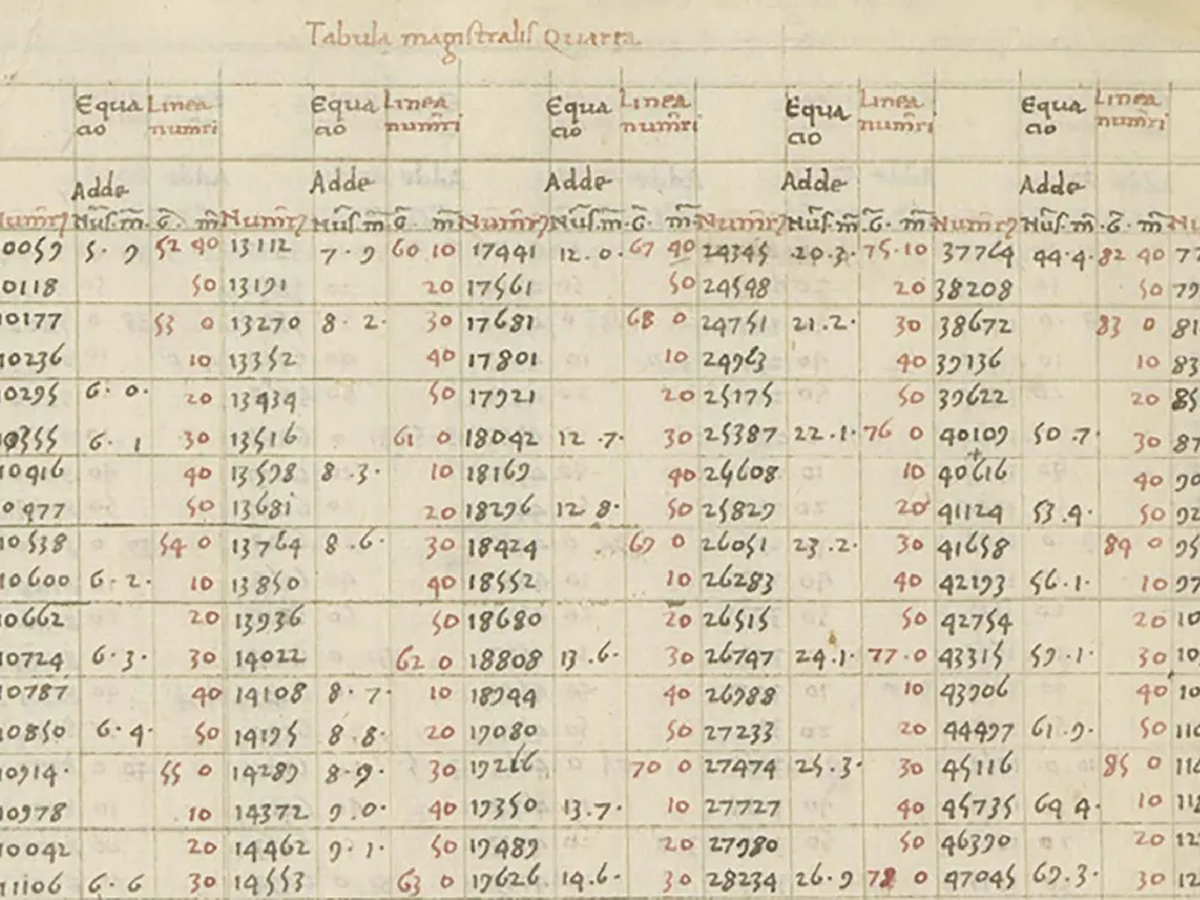 Tabula magistralis Quarta
Equa Linea Equa Linea Equa Linea Equa Linea Equa Linea
cio num̄ri cio num̄ri cio num̄ri cio num̄ri cio num̄ri
Adde Adde Adde Adde Adde
0059 5. 9 52 40 13112 7. 9 60 10 17441 12. 0. 67 40 24345 20.3. 75.10 37764 44.4. 82 40 77
0118 50 13191 20 17561 50 24548 20 38208 50 79
10177 53 0 13270 8. 2. 30 17681 68 0 24751 21.2. 30 38672 83 0 81
10236 10 13352 40 17801 10 24963 40 39136 10 83
10295 6. 0. 20 13434 50 17921 20 25175 50 39622 20 85
10355 6. 1 30 13516 61 0 18042 12 .7. 30 25387 22.1. 76 0 40109 50 .7. 30 87
10416 40 13598 8. 3. 10 18169 40 25608 10 40616 40 90
10477 50 13681 20 18296 12 8. 50 25829 20 41124 53.4. 50 92
10538 54 0 13764 8 .6. 30 18424 69 0 26051 23.2. 30 41658 84 0 95
10600 6. 2. 10 13850 40 18552 10 26283 40 42193 56.1. 10 97
10662 20 13936 50 18680 20 26515 50 42754 20 10
10724 6. 3. 30 14022 62 0 18808 13.6. 30 26747 24.1. 77.0 43315 59.1. 30 10
10787 40 14108 8. 7. 10 18944 40 26988 10 43906 40 10
10850 6. 4. 50 14195 8 .8. 20 19080 50 27233 20 44497 61.9. 50 110
10914. 55 0 14289 8.9. 30 19216 70 0 27474 25.3. 30 45116 85 0 114
10978 10 14372 9 .0. 40 19350 13.7. 10 27727 40 45735 64 4. 10 118
10042 20 14462 9. 1. 50 19489 20 27980 50 46390 20 12
11106 6. 6 30 14553 63 0 19626 14.6. 30 28234 26.9 78 0 47045 69.3. 30 12